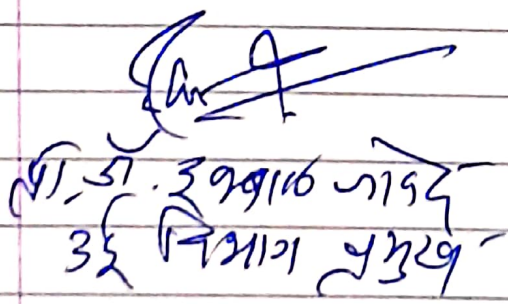 प्रा. डॉ. इकबाल जावेद
उर्दू विभाग प्रमुख